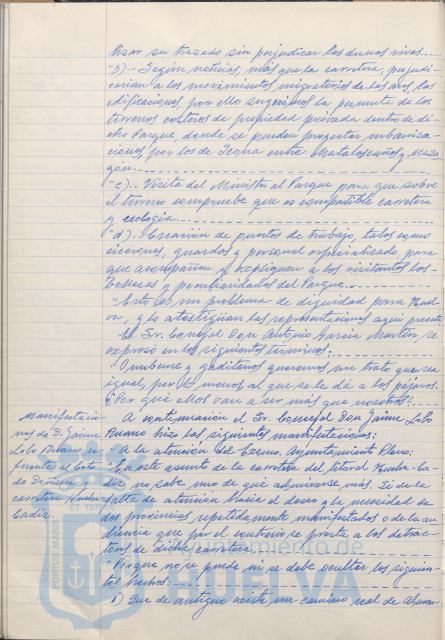 tizar su trazado sin perjudicar las dunas vivas.
"b).- Según noticias, más que la carretera, perjudi-
carían a los movimientos migratorios de las aves, las
edificaciones, por ello sugerimos la permuta de los
terrenos costeros de propiedad privada dentro de di-
cho Parque, donde se pueden proyectar urbaniza-
ciones, por los de Icona entre Matalascañas y Maza-
gón.
"c).- Visita del Ministro al Parque para que sobre
el terreno compruebe que es compatible carretera
y ecología.
"d).- Creación de puestos de trabajo, tales como
cicerones, guardas y personal especializado para
que acompañen y expliquen a los visitantes las
bellezas y peculiaridades del Parque.
"Esto es un problema de dignidad para Huel-
va, y lo atestiguan las representaciones aquí presentes
El Sr. Concejal Don Antonio García Martín se
expresó en los siguientes términos:
"Onubense y gaditanos queremos un trato que sea
igual, por lo menos al que se le dá a los pájaros.
¿Por qué ellos van a ser más que nosotros?.
Manifestacio-
nes de D. Jaime
Lobo Ruano re-
ferente al Coto
de Doñana
carretera Huelva
Cádiz.
A continuación el Sr. Concejal Don Jaime Lobo
Ruano hizo las siguientes manifestaciones:
"A la atención del Excmo. Ayuntamiento Pleno:
"En este asunto de la carretera del litoral Huelva-Cá-
diz no sabe uno de qué admirarse más. Si de la
falta de atención hacia el deseo y la necesidad de
dos provincias repetidamente manifestados o de la au-
diencia que por el contrario se presta a los detrac-
tores de dicha carretera.
"Porque no se puede ni se debe ocultar los siguien-
tes hechos:
1) Que de antiguo existe un camino real de Almon-
PORTUS MARIS ET TERRAE
Ayuntamiento de
HUELVA